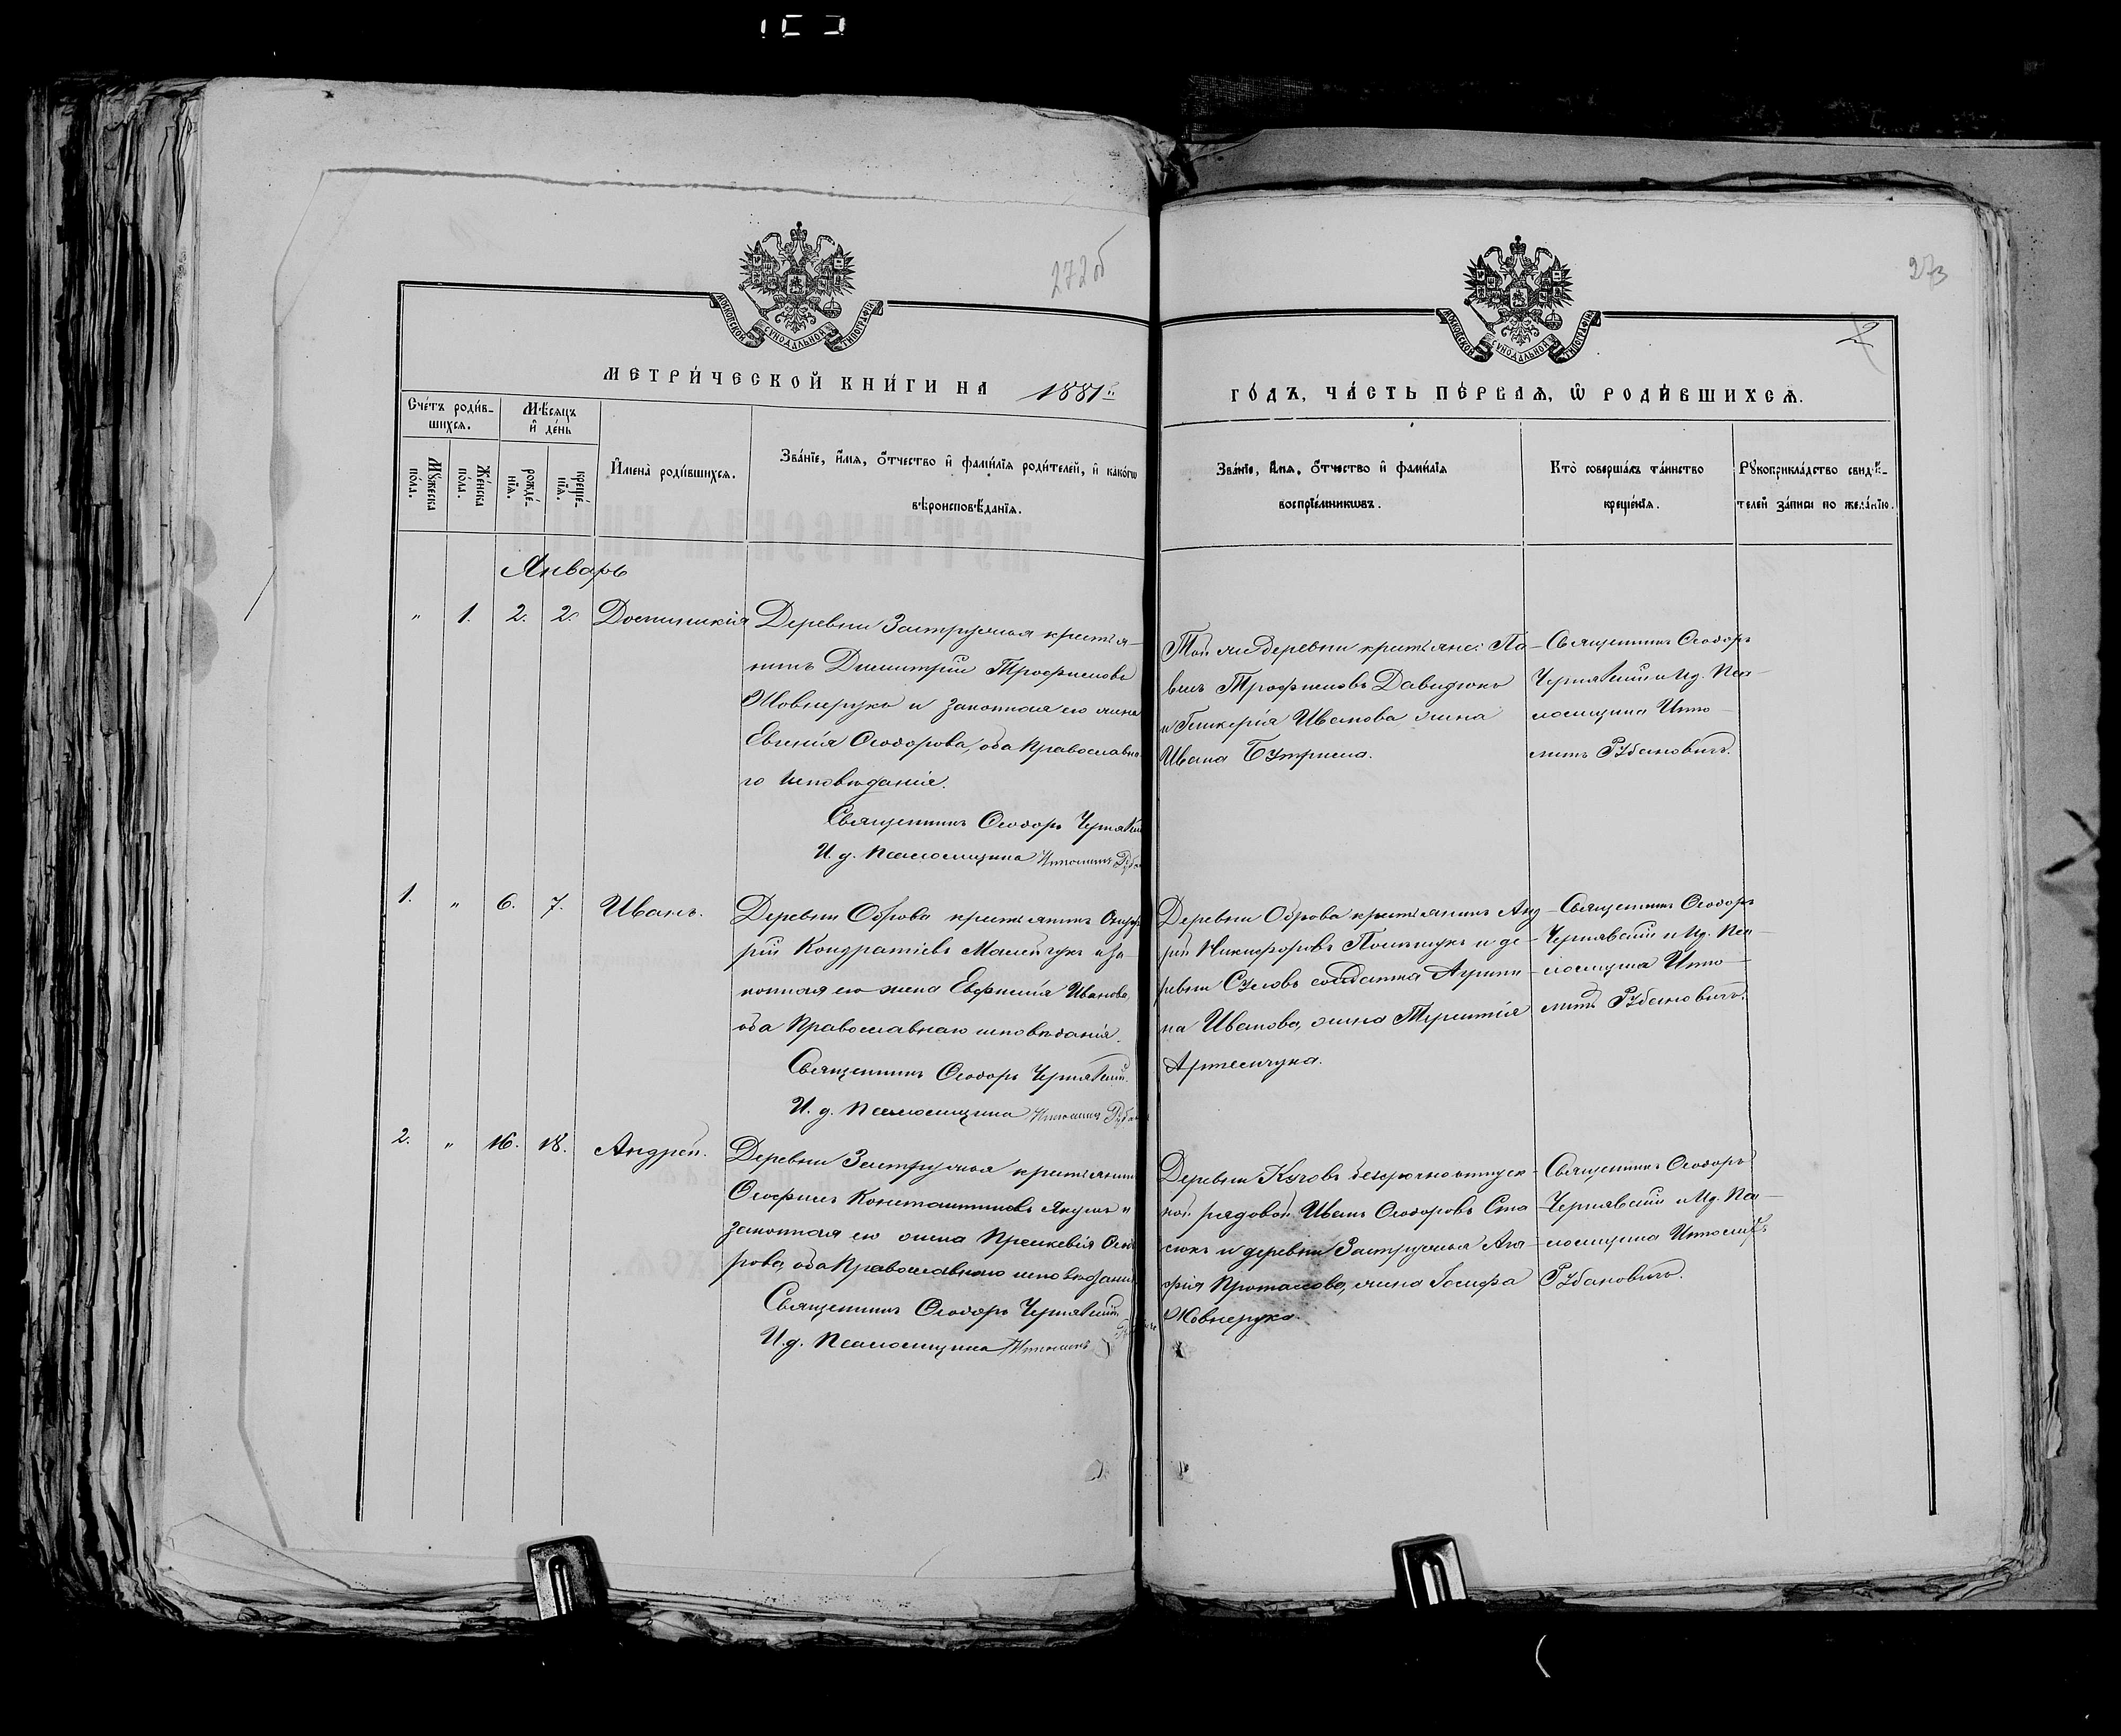 272 об
273
2
МОСКОВСКОЙ СѴНОДАЛЬНОЙ ТИПОГРАФІИ
МОСКОВСКОЙ СѴНОДАЛЬНОЙ ТИПОГРАФІИ
МЕТРИ́ЧЕСКОЙ КНИ́ГИ НА 1881
ГО́ДЪ, ЧА́СТЬ ПЕ́РВАѦ, Ѡ РОДИ́ВШИХСѦ.
Сче́тъ роди́в-
шихсѧ.
Мѣ́сѧцъ
и де́нь
Мꙋ́жеска
по́ла.
Же́нска
по́ла.
рожде́-
нїѧ.
креще́-
нїѧ.
И҆мена̀ роди́вшихсѧ.
Зва́нїе, и҆́мѧ, ѻ҆́тчество и҆ фами́лїѧ роди́телей, и҆ како́гѡ
вѣроисповѣ́данїѧ.
Зва́нїе, и҆́мѧ, ѻ҆́тчество и҆ фами́лїѧ
воспрїе́мникѡвъ.
Кто̀ соверша́лъ та́инство
креще́нїѧ.
Рꙋкоприкла́дство свидѣ́-
телей за́писи по жела́нїю.
Январь
" 1. 2. 2. Домникія
Деревни Заструмья крестья-
нинъ Димитрій Трофимовъ
Жовнерукъ и законная его жена
Евгенія Ѳеодорова, оба Православна-
го исповѣданія.
Священникъ Ѳеодоръ Чернявскій
И. д. Псаломщика Ипполитъ
Той же деревни крестьяне: Па-
велъ Трофимовъ Давидюкъ
и Гликерія Иванова жена
Ивана Бутрима.
Священникъ Ѳеодоръ
Чернявскій и И.д. Пса-
ломщика Иппо-
литъ Рубановичъ.
1. " 6. 7. Иванъ.
Деревни Оброва крестьянинъ
рій Кондратіевъ и за-
конная его жена Евфимія Иванова,
оба Православнаго исповѣданія.
Священникъ Ѳеодоръ Чернявскій.
И. д. Псаломщика Ипполитъ
Деревни Оброва крестьянинъ Анд-
рей Никифоровъ и де-
ревни солдатка
на Иванова, жена Терентія
Артемчука.
Священникъ Ѳеодоръ
Чернявскій и И.д. Пса-
ломщика Иппо-
литъ Рубановичъ.
2. " 16. 18. Андрей.
Деревни Заструмья крестьянинъ
Ѳеофилъ Константиновъ и
законная его жена Ѳеодо-
рова, оба Православнаго исповѣданія
Священникъ Ѳеодоръ Чернявскій
И.д. Псаломщика Ипполитъ
Деревни безсрочноотпуск-
ной рядовой Иванъ Ѳеодоровъ Ста-
сюкъ и деревни Заструмья Ага-
фія жена Іосифа
Жовнерука.
Священникъ Ѳеодоръ
Чернявскій и И.д. Пса-
ломщика Ипполитъ
Рубановичъ.